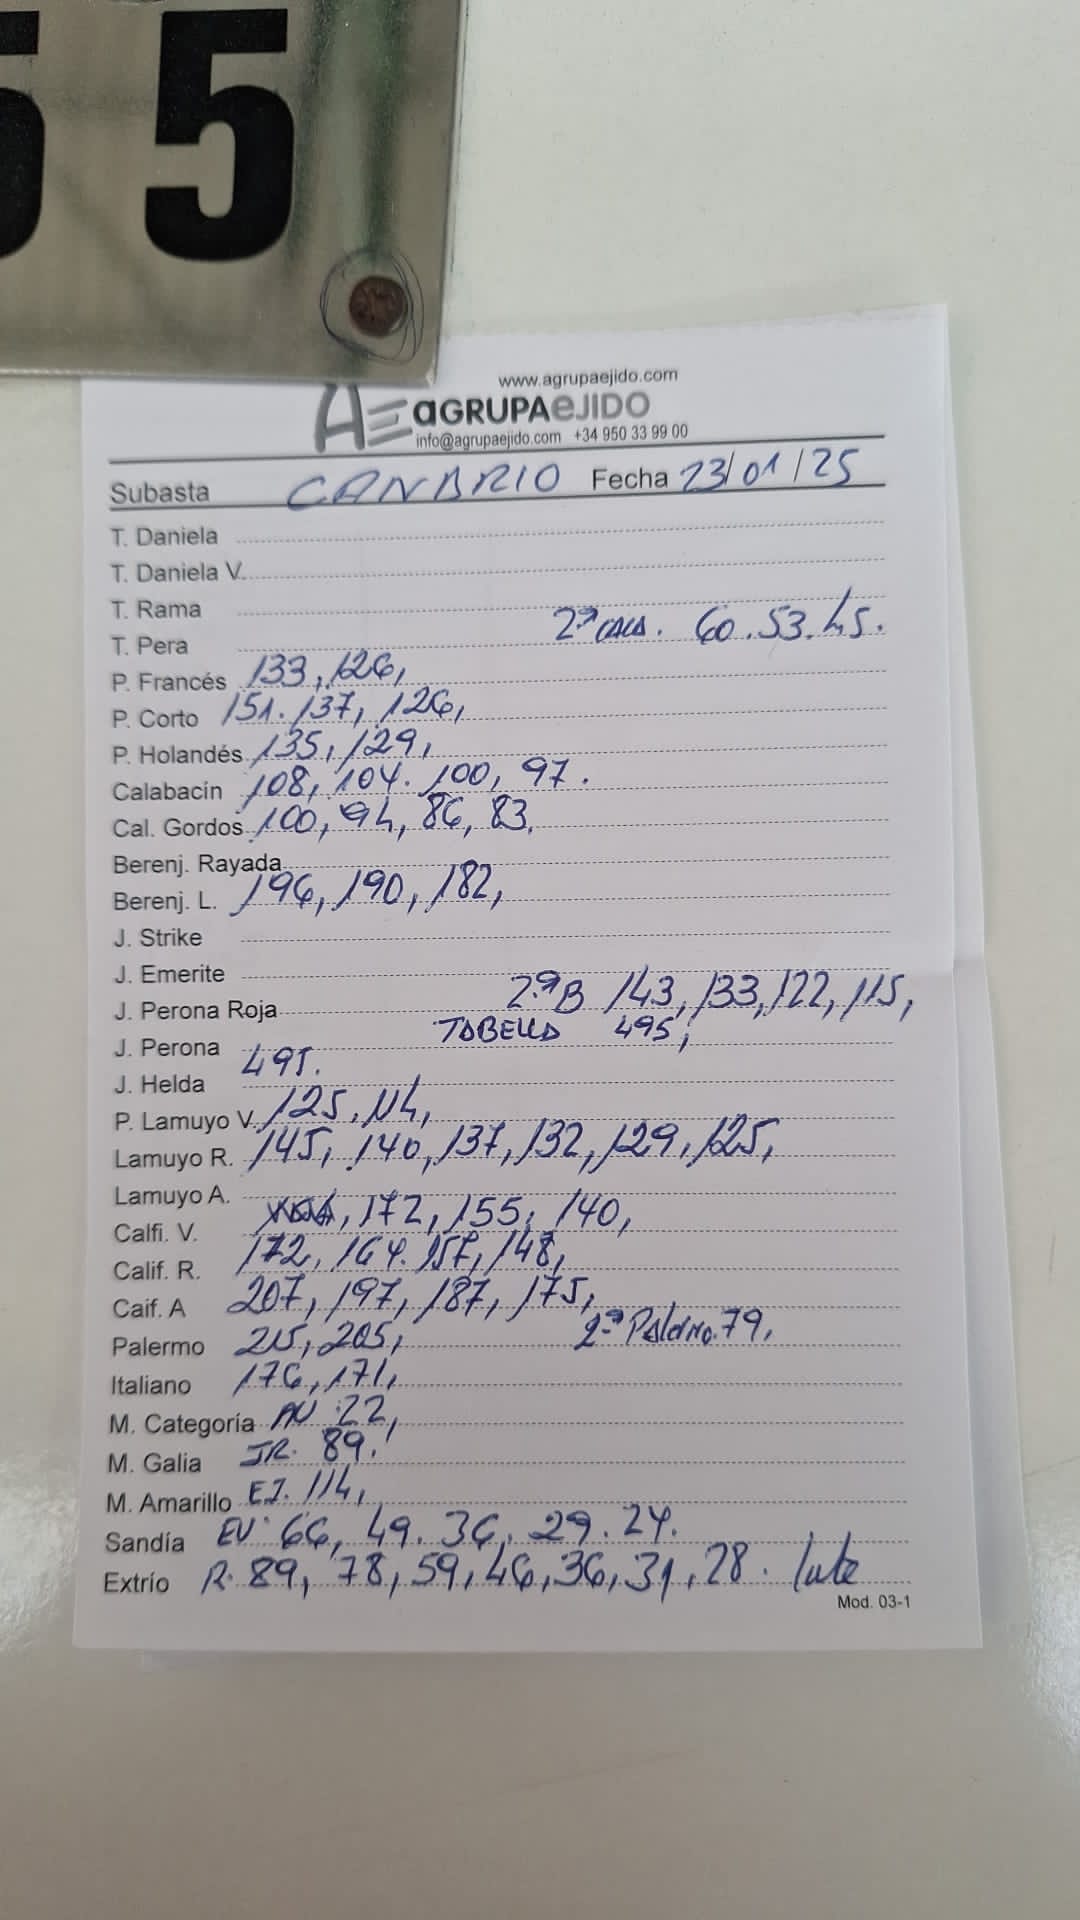 55
www.agrupaejido.com
AE AGRUPAEJIDO
info@agrupaejido.com +34 950 33 99 00
Subasta CANARIO Fecha 23/01/25
T. Daniela
T. Daniela V.
T. Rama
2ª CALA. 60.53.45.
T. Pera
P. Francés 133, 126,
P. Corto 151. 137, 126,
P. Holandés 135, 129,
Calabacín 108, 104. 100, 97.
Cal. Gordos 100, 94, 86, 83.
Berenj. Rayada
Berenj. L. 196, 190, 182,
J. Strike
J. Emerite
J. Perona Roja 2.ª B 143, 133, 122, 115,
TABELLA 495,
J. Perona 495.
J. Helda
P. Lamuyo V. 125, 114,
Lamuyo R. 145, 140, 137, 132, 129, 125,
Lamuyo A.
Calfi. V. , 172, 155, 140,
Calif. R. 172, 164. 157, 148,
Caif. A 207, 197, 187, 175,
Palermo 215, 205, 2ª Palermo. 79,
Italiano 176, 171,
M. Categoría AN 22,
M. Galia JR. 89.
M. Amarillo EJ. 114,
Sandía EV. 66, 49. 36, 29. 24.
Extrío R. 89, 78, 59, 46, 36, 31, 28.
Mod. 03-1